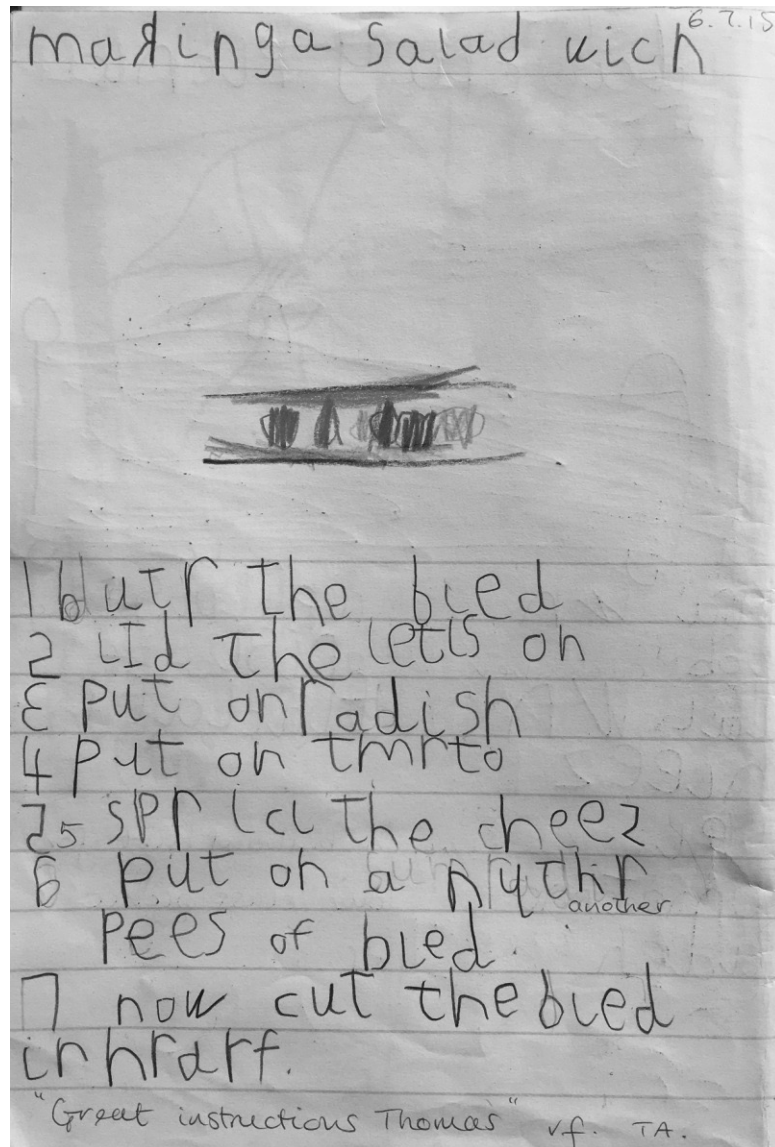 6.7.15
making a salad wich
1 butr the bred
2 lId the letis on
3 put on radish
4 put on tmrto
5 sprlcl the cheez
6 put on a nythr
another
pees of bred.
7 now cut the bred
in hrarf.
"Great instructions Thomas" v.f. TA.